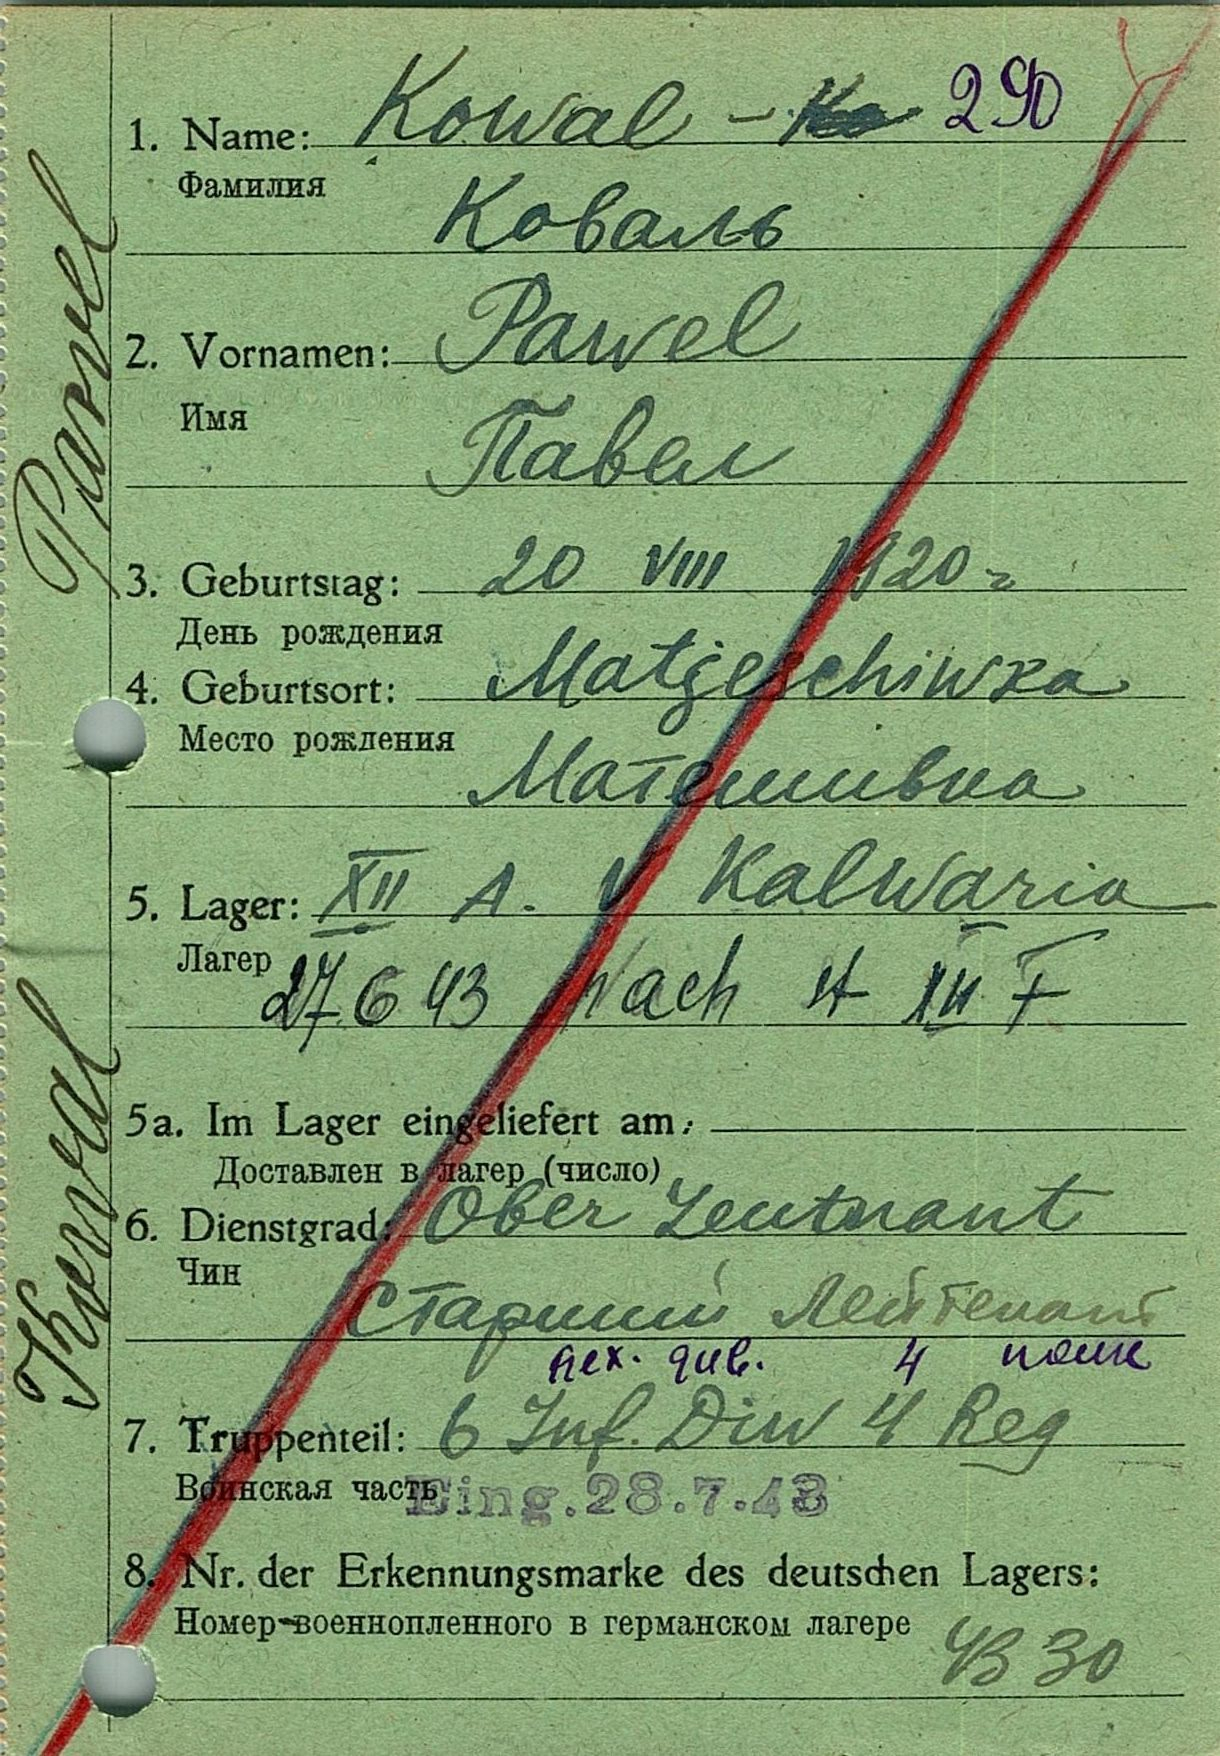 1. Name: Kowal - 290
Фамилия
Коваль
2. Vornamen: Pawel
Имя
Павел
3. Geburtstag: 20 VIII 1920 г
День рождения
4. Geburtsort: Matjeschiwka
Место рождения
Матешивка
5. Lager: XII A. V Kalwaria
Лагер
27.6 43 nach St XII F
5a. Im Lager eingeliefert am:
Доставлен в лагер (число)
6. Dienstgrad: Ober Leutnant
Чин
Старший Лейтенант
пех. див. 4 полк
7. Truppenteil: 6 Inf. Diw 4 Reg
Воинская часть
Eing. 28.7.43
8. Nr. der Erkennungsmarke des deutschen Lagers:
Номер военнопленного в германском лагере
4330
Pawel
Kowal